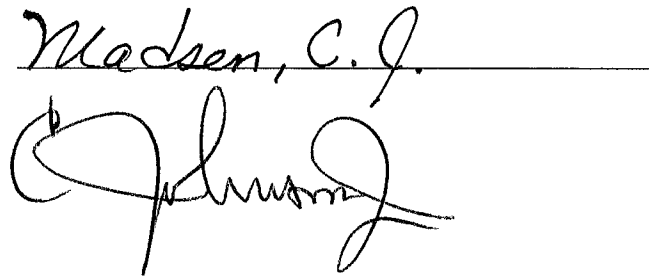 Madsen, C. J.
C Johnson J